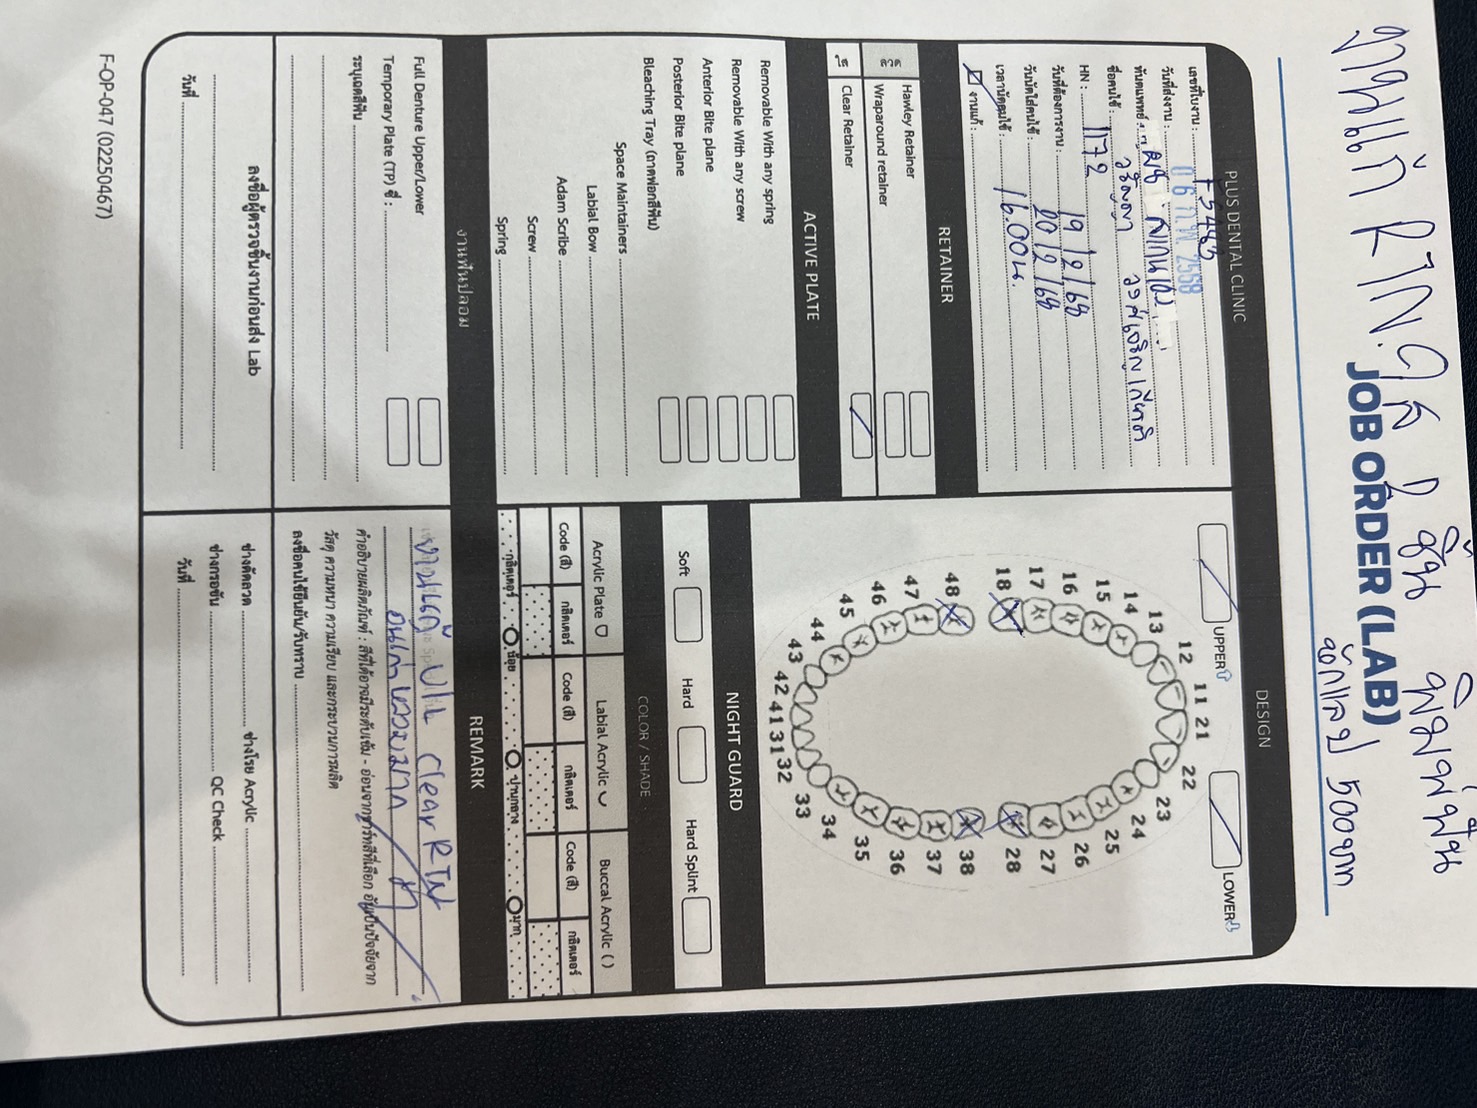 งานแก้ RTN. ใส 2 ชิ้น พิมพ์ฟัน
JOB ORDER (LAB)
500บาท
PLUS DENTAL CLINIC
เลขที่ใบงาน :
วันที่ส่งงาน : 0 6 ก.พ. 2568
ทันตแพทย์ :
ชื่อคนไข้ :
HN : 1172
วันที่ต้องการงาน : 19/2/68
วันนัดใส่คนไข้ : 20/2/68
เวลานัดคนไข้ : 16.00น.
งานแก้ :
RETAINER
ลวด
Hawley Retainer
Wraparound retainer
ใส
Clear Retainer
ACTIVE PLATE
Removable With any spring
Removable With any screw
Anterior Bite plane
Posterior Bite plane
Bleaching Tray (ถาดฟอกสีฟัน)
Space Maintainers
Labial Bow
Adam Scribe
Screw
Spring
งานฟันปลอม
Full Denture Upper/Lower
Temporary Plate (TP) ซี่ :
ระบุเฉดสีฟัน
ลงชื่อผู้ตรวจชิ้นงานก่อนส่ง Lab
วันที่
DESIGN
UPPER
LOWER
18 17 16 15 14 13 12 11 21 22 23 24 25 26 27 28
48 47 46 45 44 43 42 41 31 32 33 34 35 36 37 38
NIGHT GUARD
Soft
Hard
Hard Splint
COLOR / SHADE
Acrylic Plate
Labial Acrylic
Buccal Acrylic ( )
Code (สี) กลิตเตอร์ Code (สี) กลิตเตอร์ Code (สี) กลิตเตอร์
กลิตเตอร์ น้อย ปานกลาง มาก
REMARK
งานแก้ U/L Clear RTN
คำอธิบายผลิตภัณฑ์ : สีที่ได้อาจมีระดับเข้ม - อ่อนจากชาร์ทสีที่เลือก อันเป็นปัจจัยจาก
วัสดุ ความหนา ความเรียบ และกระบวนการผลิต
ลงชื่อคนไข้ยืนยัน/รับทราบ
ช่างดัดลวด ช่างโรย Acrylic
ช่างกรอขัน QC Check
วันที่
F-OP-047 (02250467)